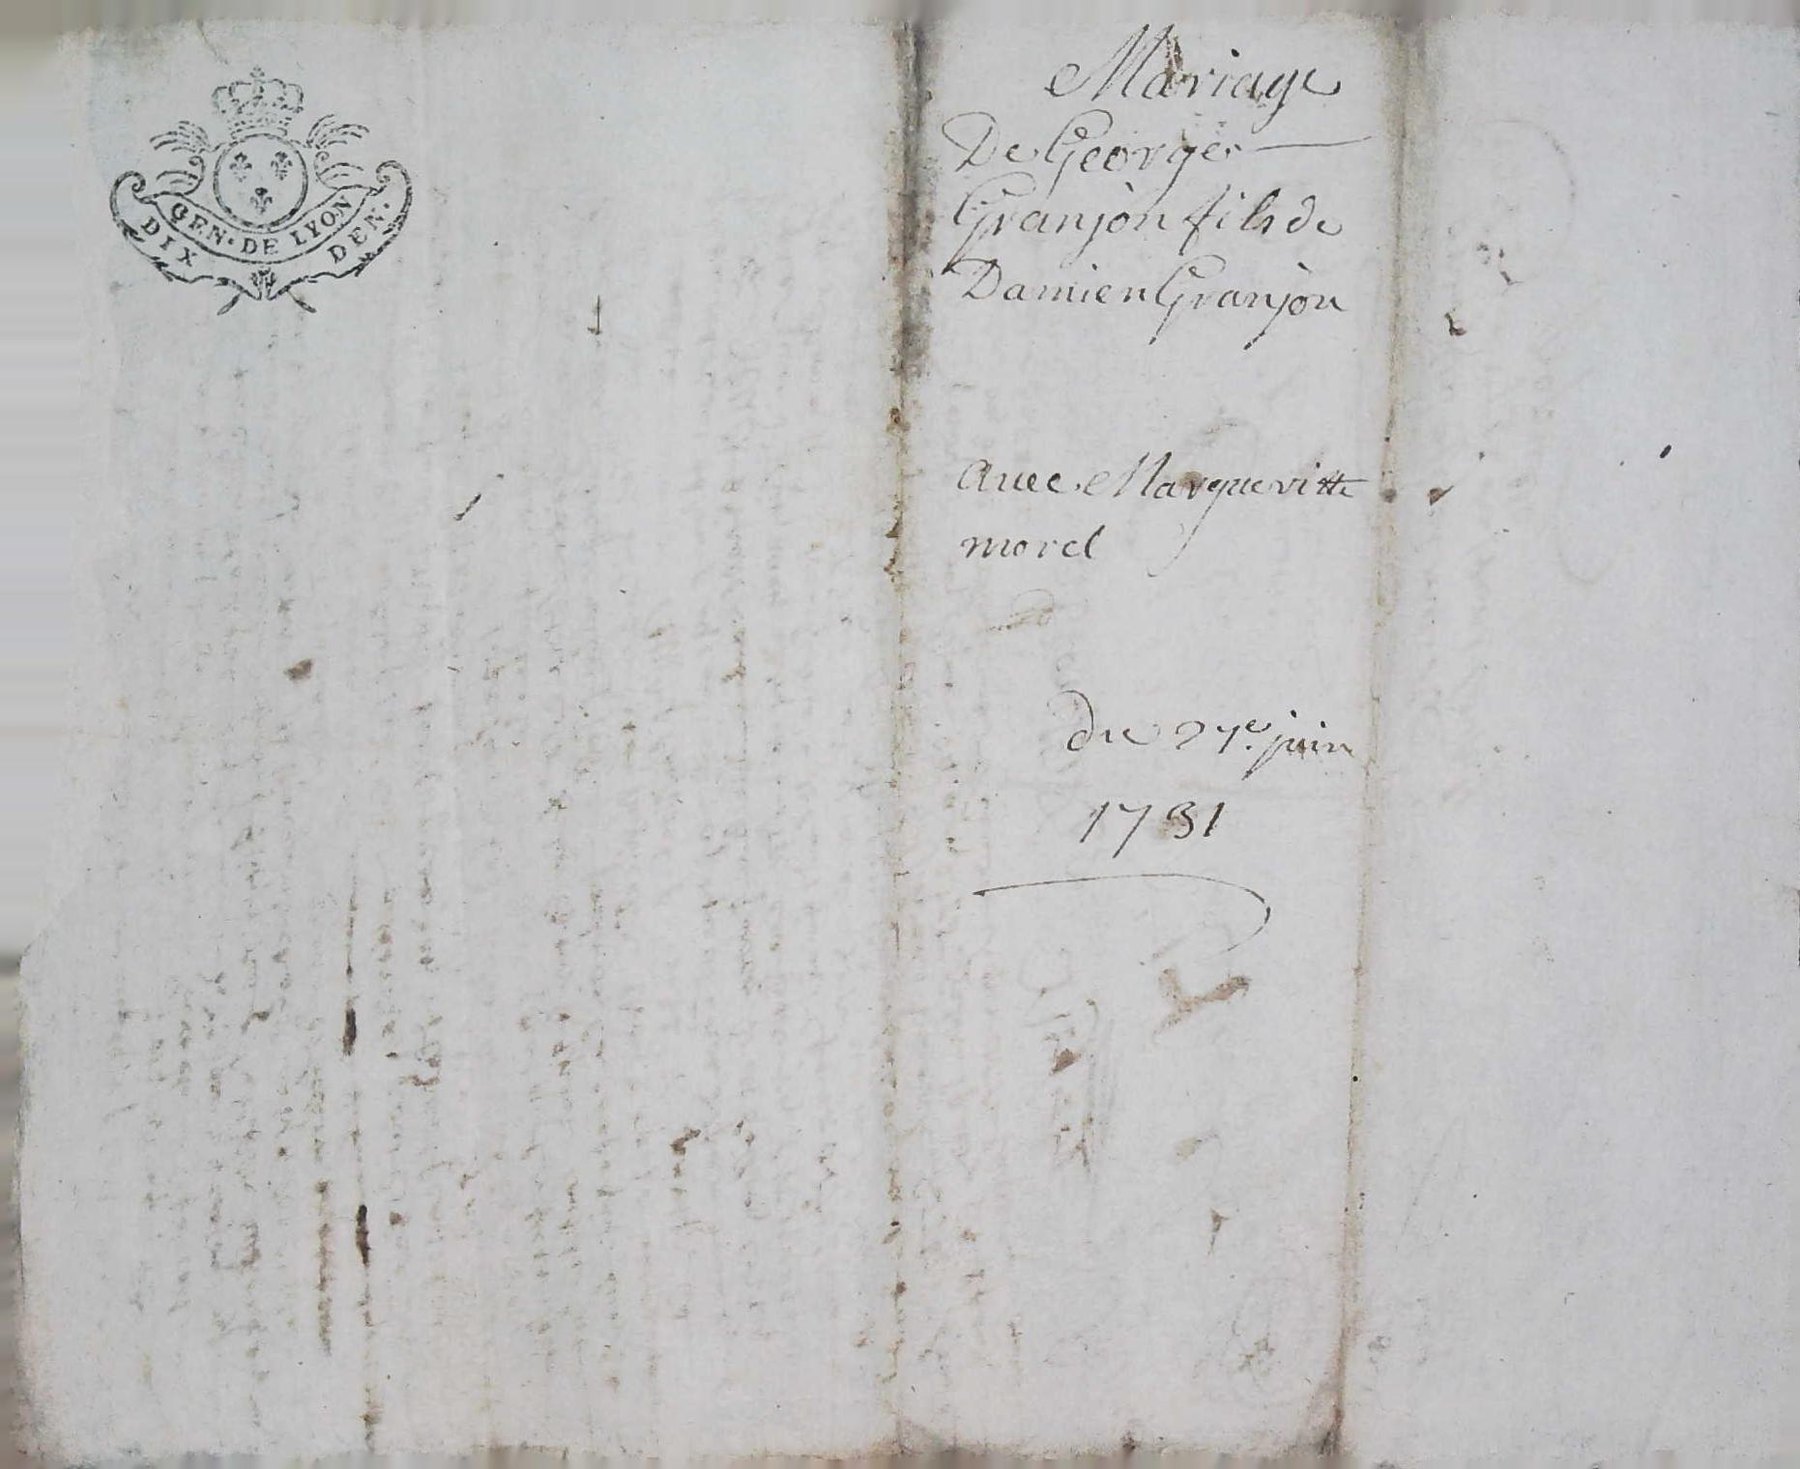 GEN. DE LYON
DIX DEN.
Mariage
De George
Granjon fils de
Damien Granjon
avec Margueritte
morel
du 27e. juin
1731